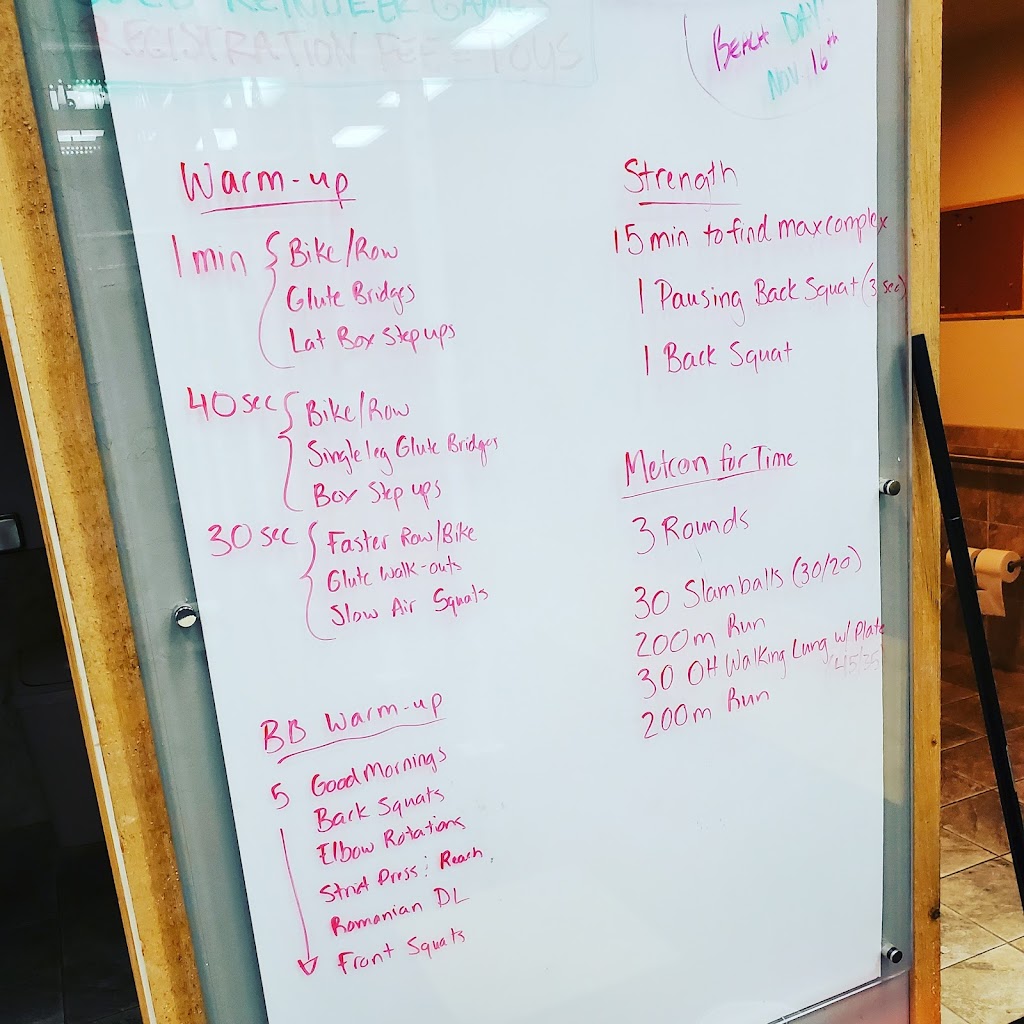 REINDEER GAMES
REGISTRATION FEE = TOYS
BEACH DAY!
NOV. 16th
Warm-up
1 min { Bike/Row
Glute Bridges
Lat Box Step ups
40 sec { Bike/Row
Single leg Glute Bridges
Box Step ups
30 sec { Faster Row/Bike
Glute Walk-outs
Slow Air Squats
BB Warm-up
5 Good Mornings
Back Squats
Elbow Rotations
Strict Press & Reach
Romanian DL
Front Squats
Strength
15 min to find max complex
1 Pausing Back Squat (3 sec)
1 Back Squat
Metcon for Time
3 Rounds
30 Slamballs (30/20)
200m Run
30 OH Walking Lung w/ Plate
(45/35)
200m Run